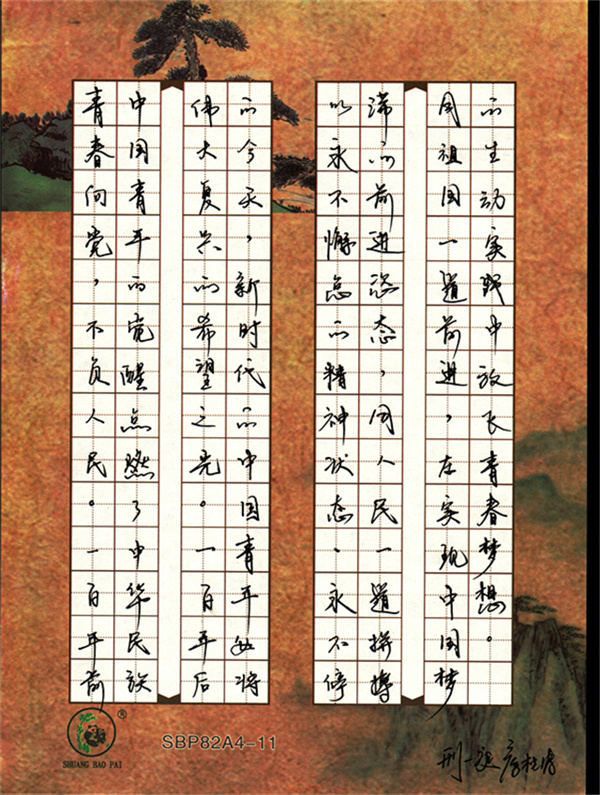 青春向党，不负人民。一百年前
中国青年的觉醒点燃了中华民族
伟大复兴的希望之光。一百年后
的今天，新时代的中国青年必将
以永不懈怠的精神状态、永不停
滞的前进姿态，同人民一道拼搏
同祖国一道前进，在实现中国梦
的生动实践中放飞青春梦想。
SHUANG BAO PAI
®
SBP82A4-11